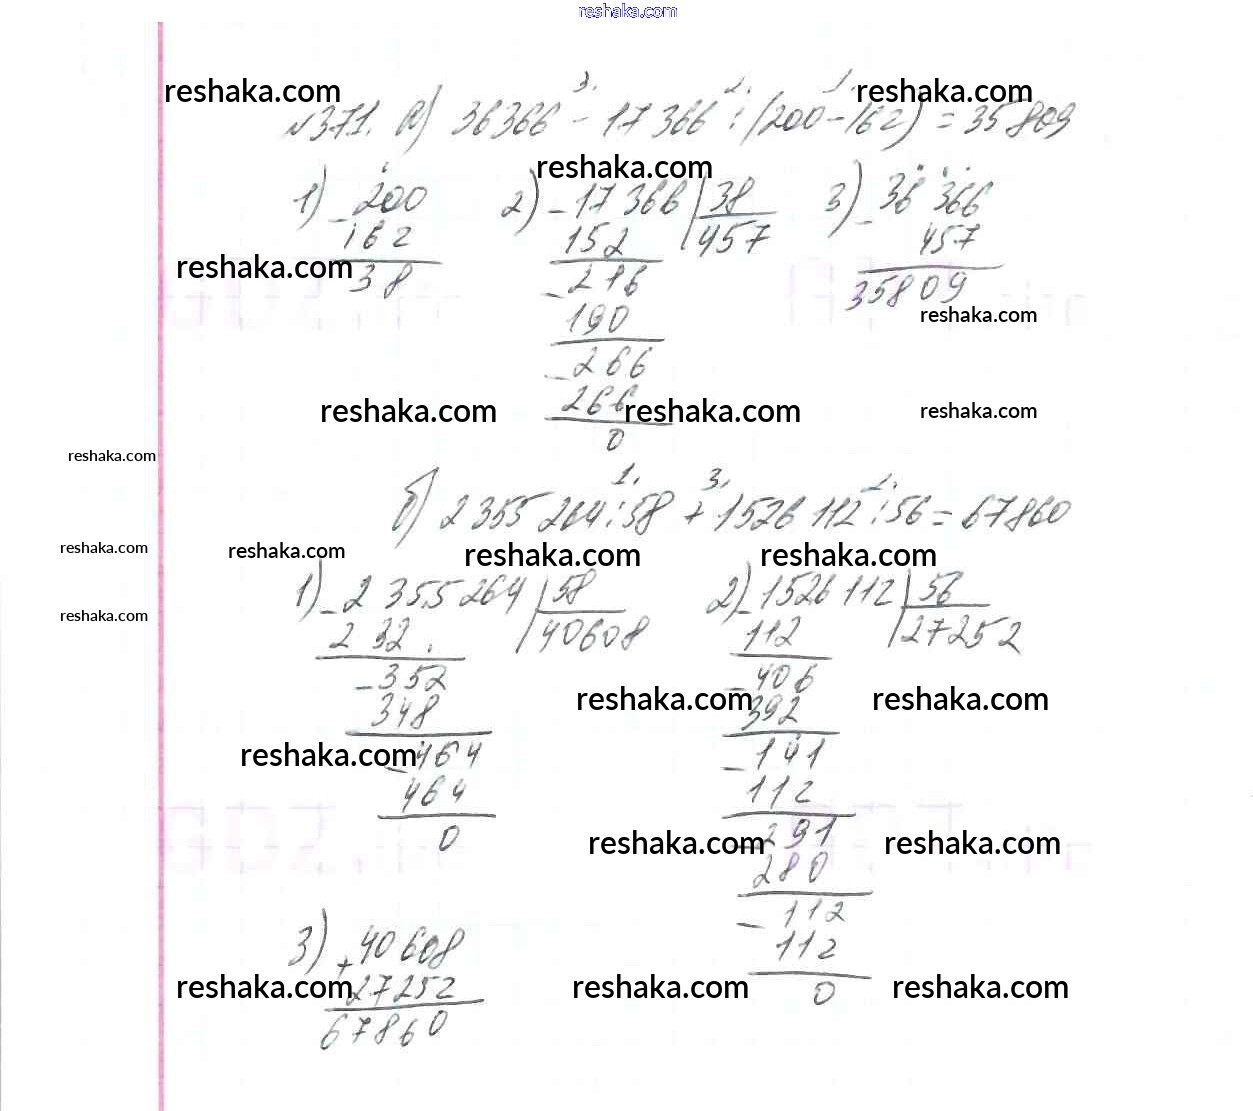 reshaka.com
reshaka.com reshaka.com
3. 2. 1.
№371. а) 36366 - 17366 : (200-162) = 35809
reshaka.com
1) 200 2) 17 366 | 38 3) 36 366
- 162 - 152 | 457 - 457
38 - 216 35809
reshaka.com
190 reshaka.com
- 266
266
0
reshaka.com reshaka.com reshaka.com
reshaka.com
1. 3. 2.
б) 2 355 264 : 58 + 1526 112 : 56 = 67860
reshaka.com reshaka.com reshaka.com reshaka.com
1) - 2 355 264 | 58 2) - 1526 112 | 56
2 32 | 40608 112 | 27252
- 352 - 406
348 392
- 464 - 141
464 112
0 - 291
280
- 112
112
0
reshaka.com
reshaka.com reshaka.com
reshaka.com
reshaka.com reshaka.com
3) + 40 608
27252
67860
reshaka.com reshaka.com reshaka.com